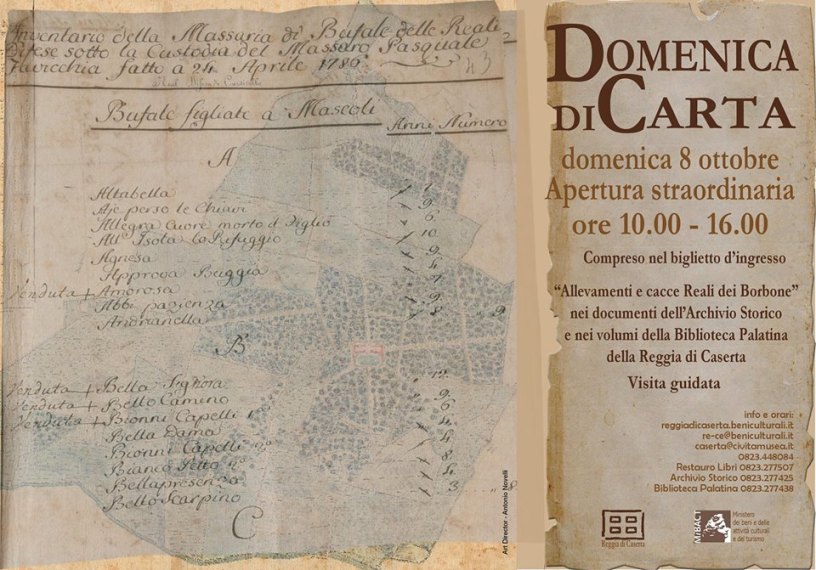 Inventario della Massaria di Bufale delle Reali
Difese sotto la Custodia del Massaro Pasquale
Iavicchia fatto a 24 Aprile 1780
43
Bufale figliate a Mascoli
Anni Numero
A
Altabella 1
Aje perso le Chiavi 9
Allegra Cuore morto il Figlio 6
All' Isola lo Rifuggio 10
Agnesa 9
Approva Buggia 4
Venduta + Amorosa 7
Abbi pazienza 9
Andrianella 8 9
B
Venduta + Bella Signora 12
Venduta + Bello Camino 9
Venduta + Bionni Capelli 1º 6
Bella Dama 4
Bionni Capelli 2º 4
Bianco Petto 2º 8
Bellapresenza 4
Bello Scarpino 3
C
Art Director - Antonio Novelli
DOMENICA
DI CARTA
domenica 8 ottobre
Apertura straordinaria
ore 10.00 - 16.00
Compreso nel biglietto d'ingresso
“Allevamenti e cacce Reali dei Borbone”
nei documenti dell'Archivio Storico
e nei volumi della Biblioteca Palatina
della Reggia di Caserta
Visita guidata
info e orari:
reggiadicaserta.beniculturali.it
re-ce@beniculturali.it
caserta@civitamusea.it
0823.448084
Restauro Libri 0823.277507
Archivio Storico 0823.277425
Biblioteca Palatina 0823.277438
Reggia di Caserta
MiBACT
Ministero
dei beni e delle
attività culturali
e del turismo